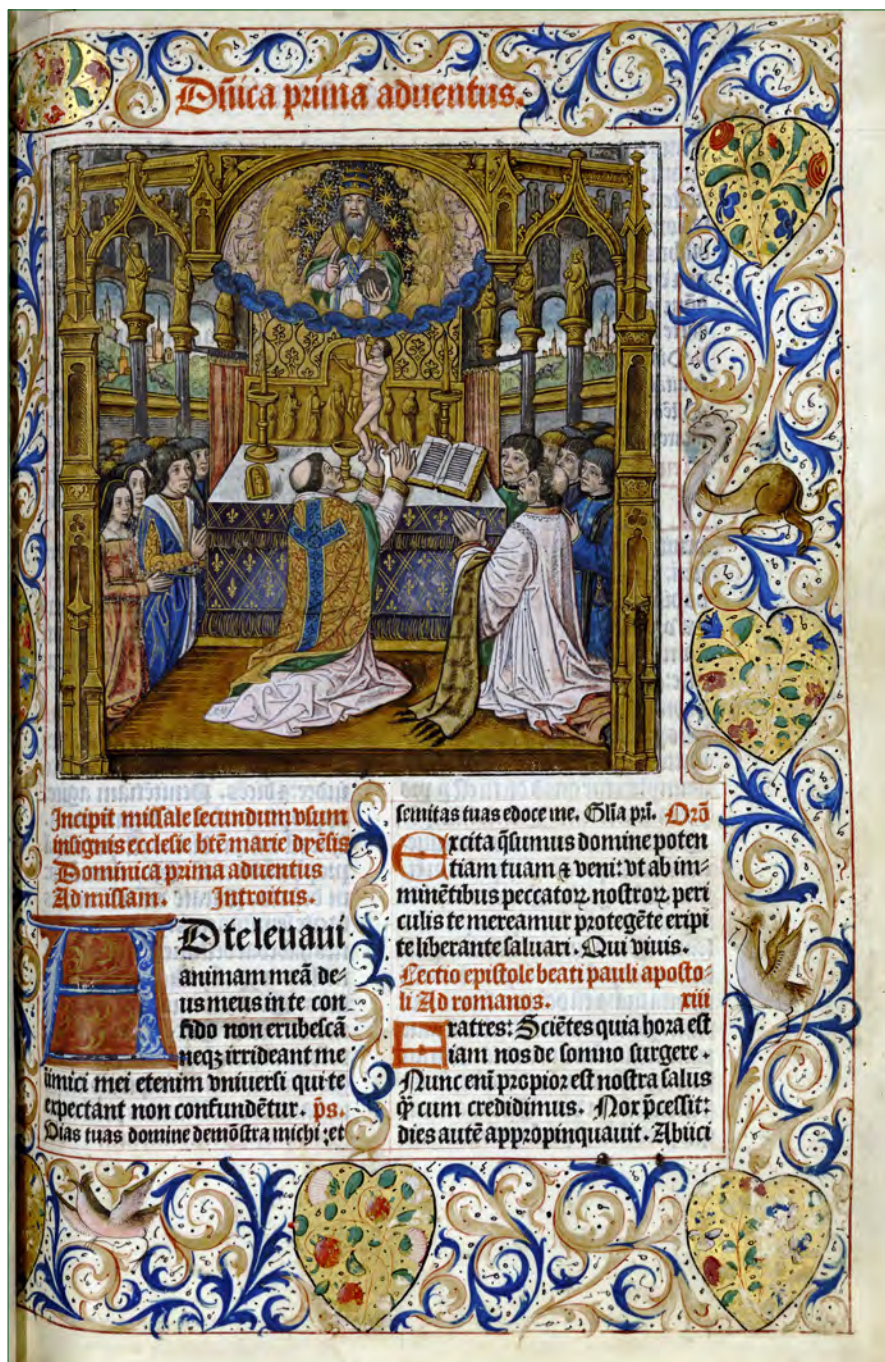 Dñica prima aduentus.
Incipit missale secundum vsum
insignis ecclesie btẽ marie dyẽsis
Dominica prima aduentus
Ad missam. Introitus.
AD te leuaui
animam meã de-
us meus in te con
fido non erubescã
neqꝫ irrideant me
inimici mei etenim vniuersi qui te
expectant non confundẽtur. p̃s.
Vias tuas domine demõstra michi : et
semitas tuas edoce me. Gl̃ia pr̃i. Orõ
Excita q̃sumus domine poten
tiam tuam ⁊ veni: vt ab im-
minẽtibus peccatoꝝ nostroꝝ peri
culis te mereamur protegẽte eripi
te liberante saluari. Qui viuis.
Lectio epistole beati pauli aposto-
li Ad romanos. xiii
Fratres: Sciẽtes quia hora est
iam nos de somno surgere.
Nunc eni ̃propior est nostra salus
q̃ cum credidimus. Nox p̃cessit:
dies autẽ appropinquauit. Abiici